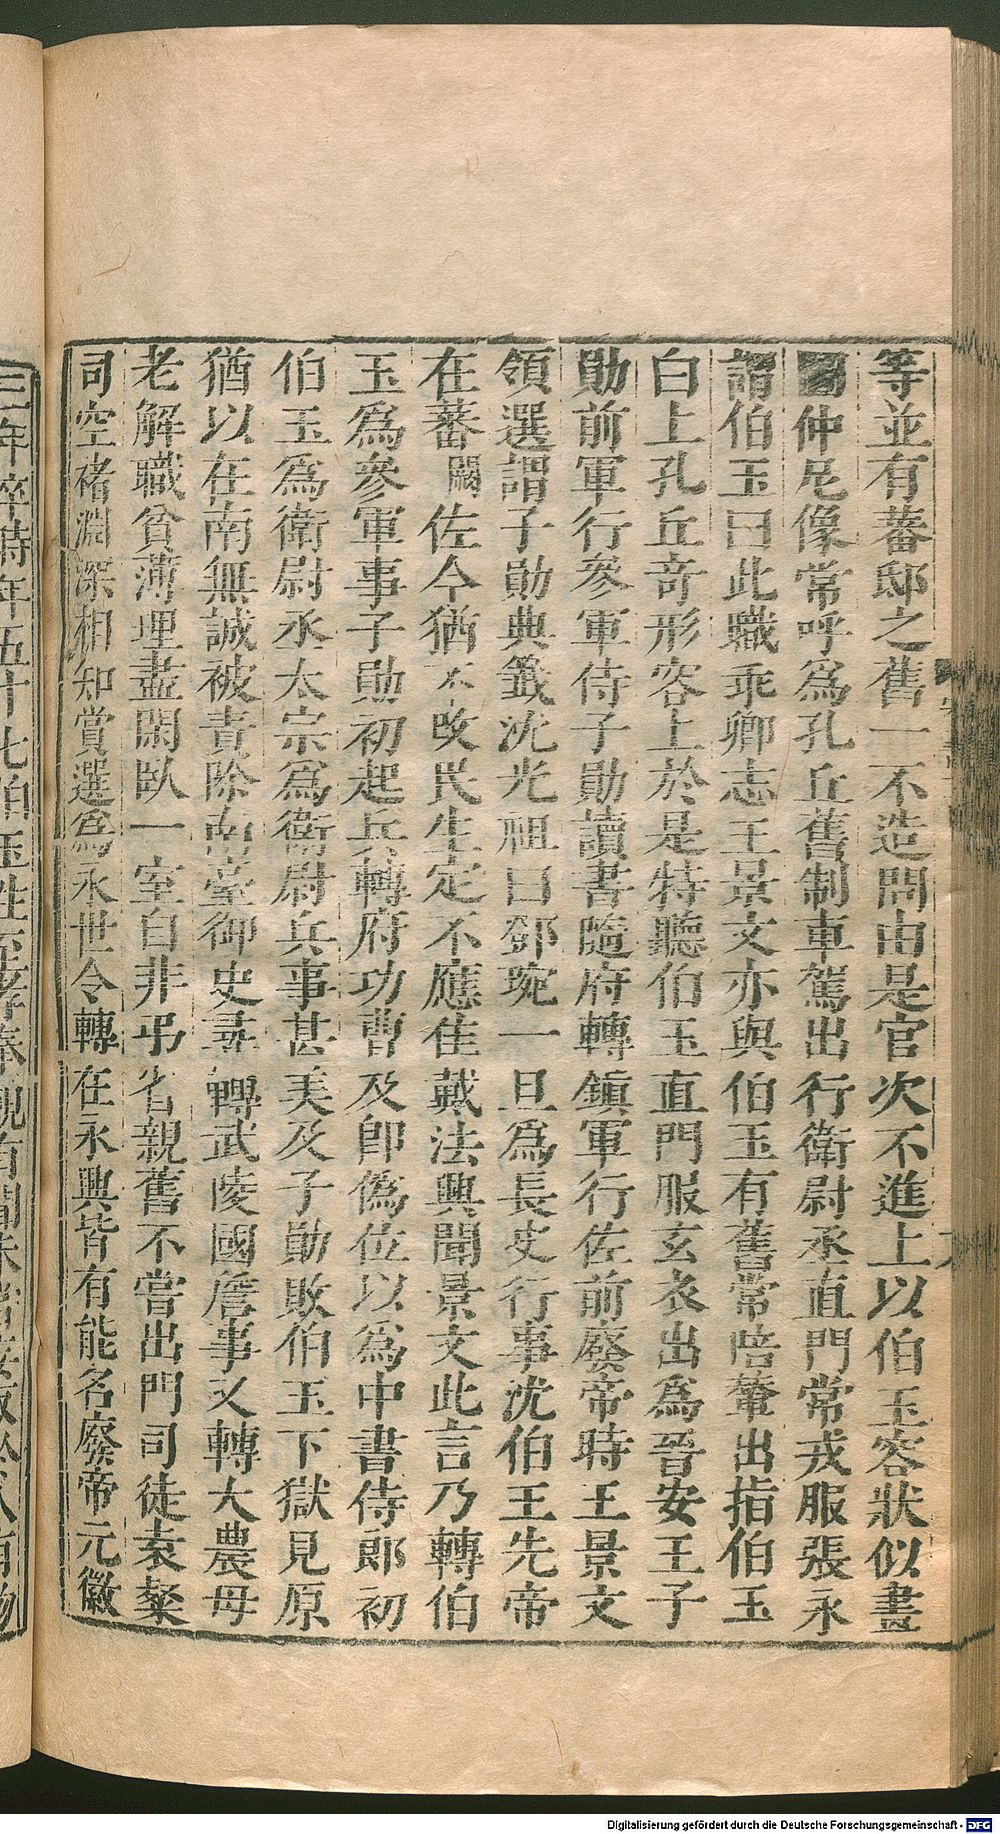 等並有蕃邸之舊一不造問由是官次不進上以伯玉容狀似畫
仲尼像常呼爲孔丘舊制車駕出行衛尉丞直門常戎服張永
謂伯玉曰此職乖卿志王景文亦與伯玉有舊常陪輦出指伯玉
白上孔丘奇形容上於是特聽伯玉直門服玄衣出爲晉安王子
勛前軍行參軍侍子勛讀書隨府轉鎮軍行佐前廢帝時王景文
領選謂子勛典籤沈光祖曰鄧琬一旦爲長史行事沈伯玉先帝
在蕃闕佐今猶不改民生定不應佳戴法興聞景文此言乃轉伯
玉爲參軍事子勛初起兵轉府功曹及卽僞位以爲中書侍郎初
伯玉爲衛尉丞太宗爲衛尉兵事甚美及子勛敗伯玉下獄見原
猶以在南無誠被責除南臺御史尋轉武陵國詹事又轉大農母
老解職貧薄理盡閑臥一室自非弔省親舊不嘗出門司徒袁粲
司空褚淵深相知賞選爲永世令轉在永興皆有能名廢帝元徽
三年卒時年五十七伯玉性至孝奉親有聞未嘗妄取於人有物
Digitalisierung gefördert durch die Deutsche Forschungsgemeinschaft - DFG